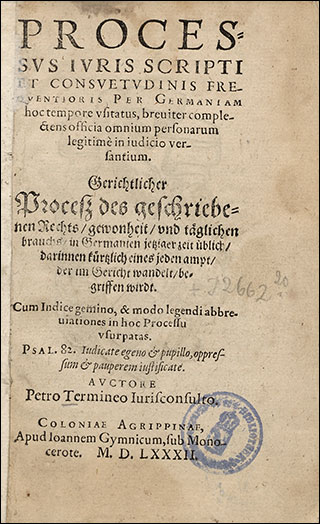 PROCES-
SVS IVRIS SCRIPTI
ET CONSVETVDINIS FRE-
QVENTIORIS PER GERMANIAM
hoc tempore vsitatus, breuiter comple-
ctens officia omnium personarum
legitimè in iudicio ver-
santium.
Gerichtlicher
Proceß des geschriebe-
nen Rechts/ gewonheit/ vnd täglichen
brauchs/ in Germanien jetziger zeit üblich/
darinnen kürtzlich eines jeden ampt/
der im Gericht wandelt/ be-
griffen wirdt.
Cum Indice gemino, & modo legendi abbre-
uiationes in hoc Processu
vsurpatas.
PSAL. 82. Iudicate egeno & pupillo, oppres-
sum & pauperem iustificate.
AVCTORE
Petro Termineo Iurisconsulto.
COLONIAE AGRIPPINAE,
Apud Ioannem Gymnicum, sub Mono-
cerote. M. D. LXXXII.